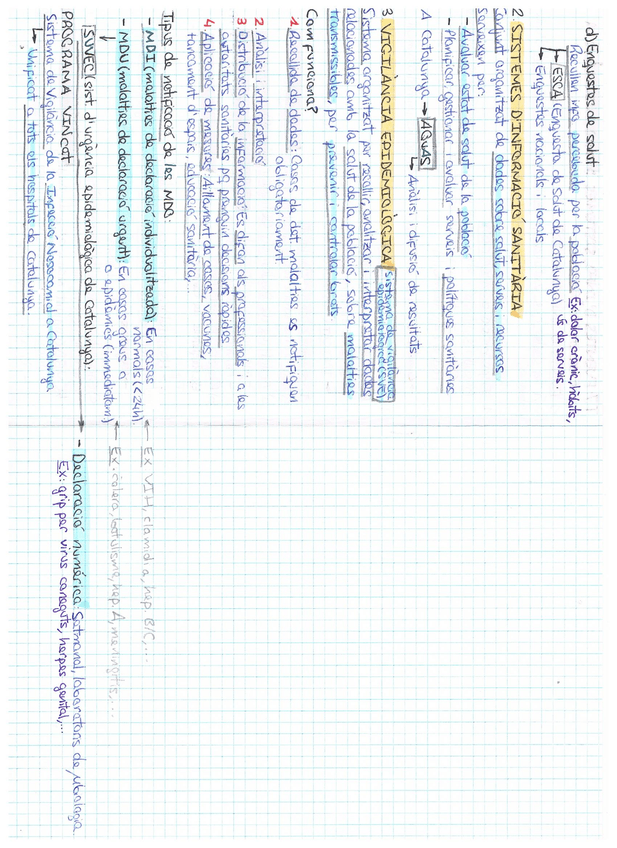 d) Enquestes de salut:
Recullen info percebuda per la població Ex: dolor crònic, hàbits, ús de serveis.
↳ ESCA (Enquesta de Salut de Catalunya)
↳ Enquestes nacionals i locals
2 SISTEMES D'INFORMACIÓ SANITÀRIA
Conjunt organitzat de dades sobre salut, serveis i recursos.
Serveixen per:
- Avaluar estat de salut de la població
- Planificar, gestionar i avaluar serveis i polítiques sanitàries
A Catalunya → AQUAS
↳ Anàlisi i difusió de resultats
3 VIGILÀNCIA EPIDEMIOLÒGICA sistema de vigilància epidemiològica (SIVE)
Sistema organitzat per recollir, analitzar i interpretar dades
relacionades amb la salut de la població, sobre malalties
transmissibles, per prevenir i controlar brots
Com funciona?
1 Recollida de dades: Casos de det. malalties es notifiquen
obligatòriament
2 Anàlisi i interpretació
3 Distribució de la informació: Es dicen als professionals i a les
autoritats sanitàries pq prenguin decisions ràpides
4 Aplicació de mesures: Aïllament de casos, vacunes,
tancament d'espais, educació sanitària,...
Tipus de notificació de les MDO:
- MDI (malalties de declaració individualitzada): En casos
normals (<24h). ← Ex VIH, clamídia, hep. B/C,...
- MDU (malalties de declaració urgent): En casos greus o
o epidèmics (immediatam.) ← Ex. còlera, botulisme, hep. A, meningitis,...
SUVEC (sist. d'urgència epidemiològica de Catalunya):
- Declaració numèrica: Setmanal, laboratoris de
Ex: grip per virus coneguts, herpes genital,...
PROGRAMA VINCat
Sistema de Vigilància de la Infecció Nosocomial a Catalunya
↳ Unificat a tots els hospitals de Catalunya.